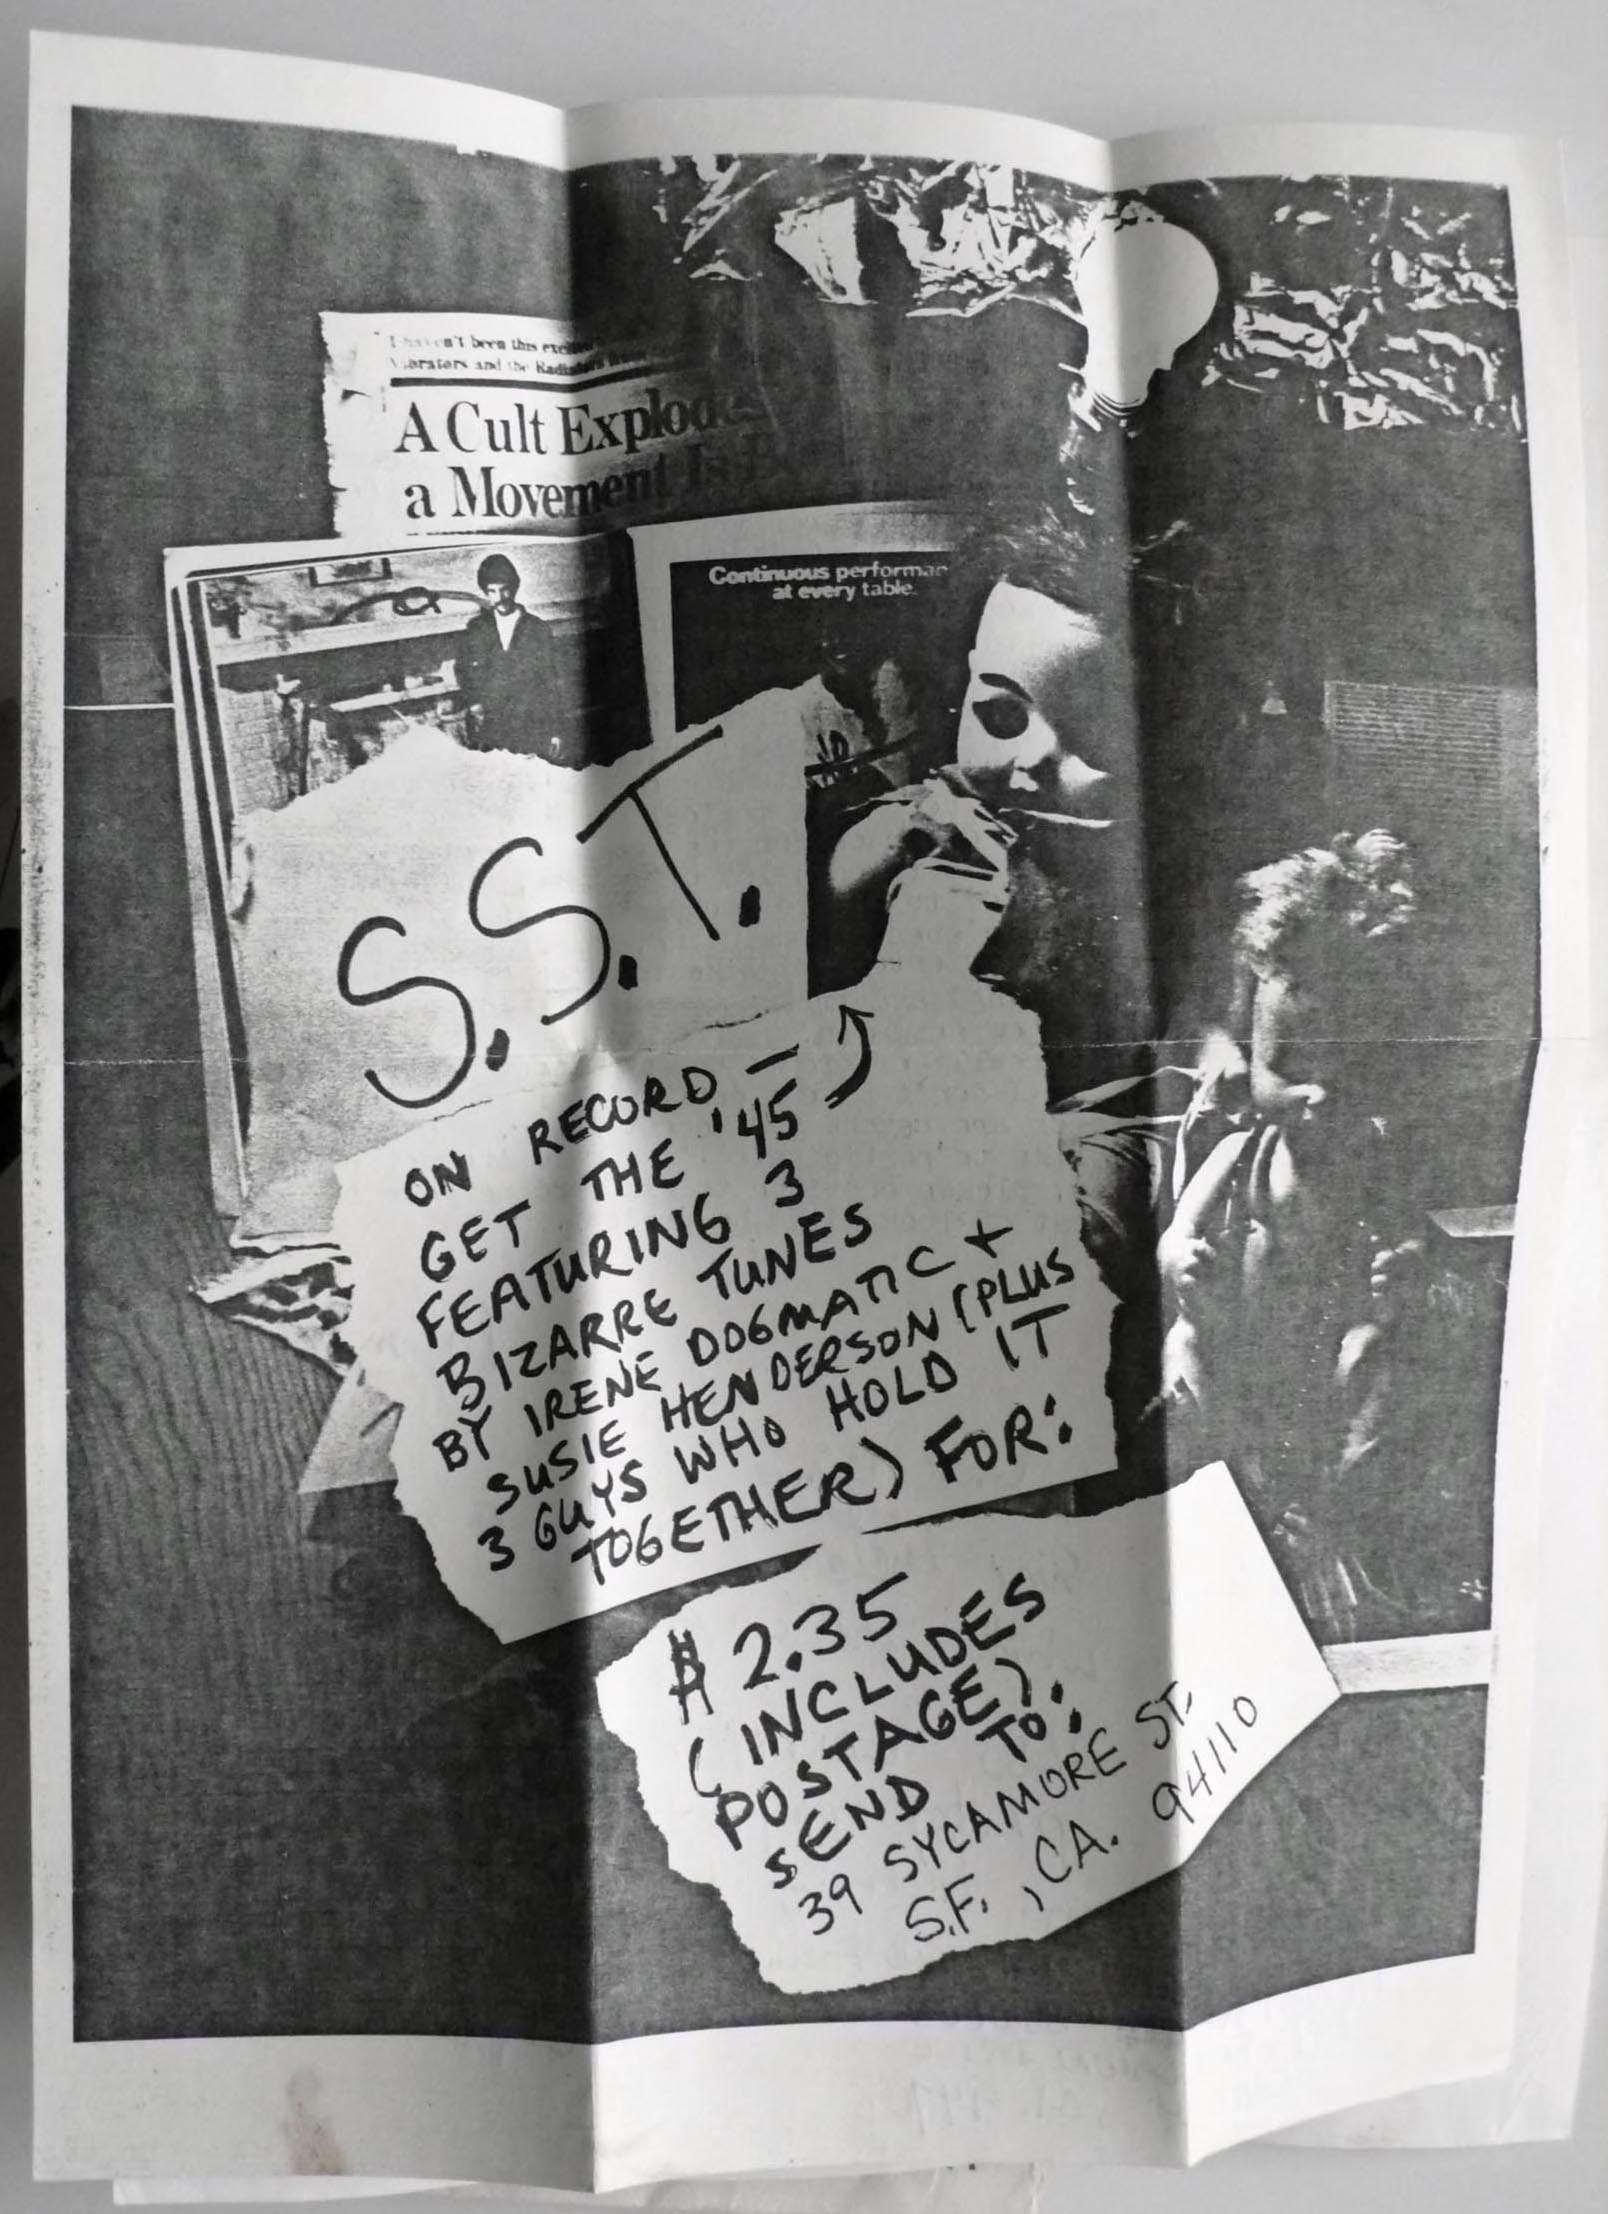 I haven't been this
and the
A Cult Explodes
a Movement Is
Continuous performan
at every table.
S.S.T.
ON RECORD —
GET THE '45
FEATURING 3
BIZARRE TUNES
BY IRENE DOGMATIC +
SUSIE HENDERSON (PLUS
3 GUYS WHO HOLD IT
TOGETHER) FOR:
$2.35
(INCLUDES
POSTAGE).
SEND TO:
39 SYCAMORE ST.
S.F., CA. 94110